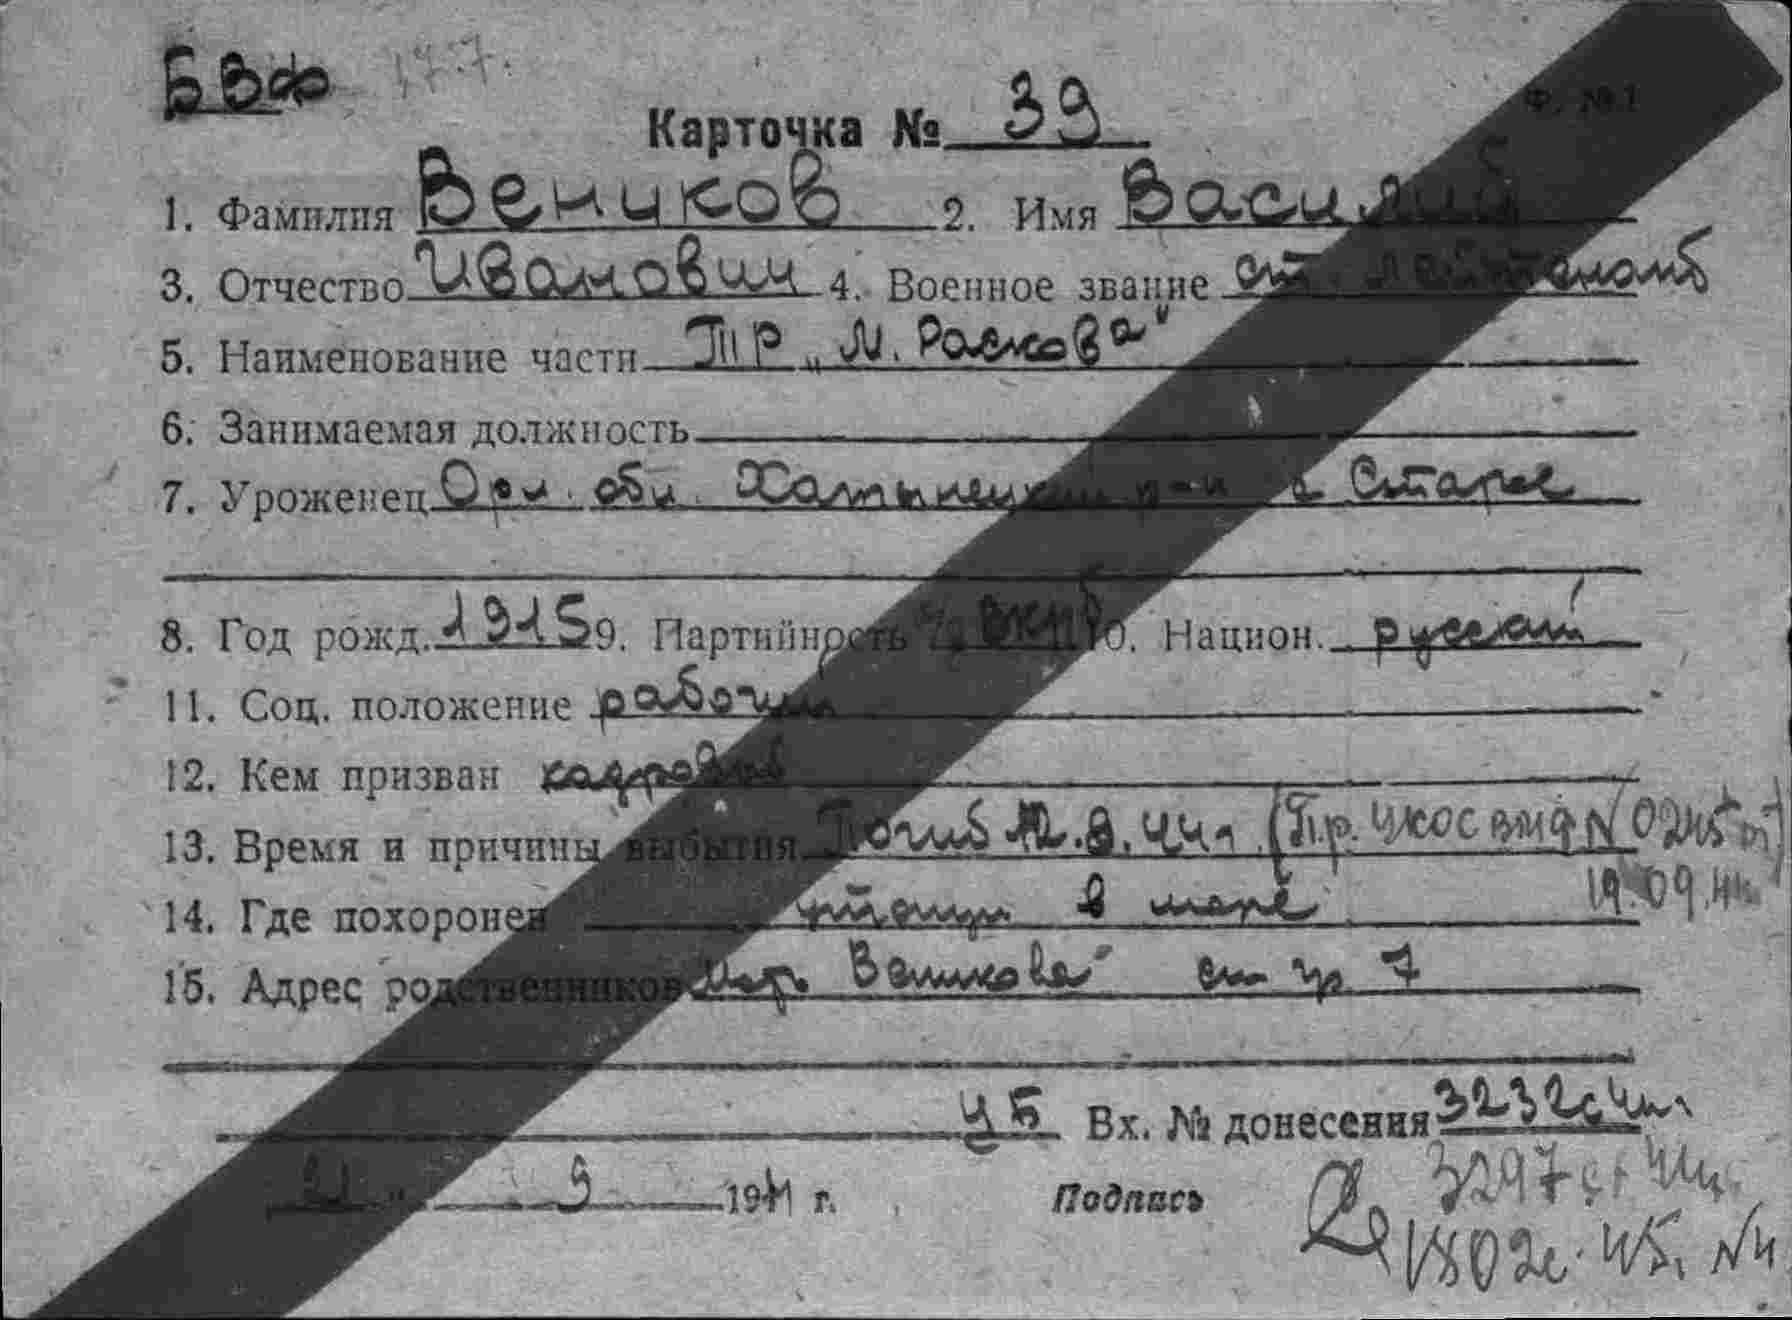 БВФ 17.7.
Ф. №1
Карточка № 39
1. Фамилия Веников 2. Имя Василий
3. Отчество Иванович 4. Военное звание ст. лейтенант
5. Наименование части ТР „М. Раскова"
6. Занимаемая должность
7. Уроженец Орл. обл. Хатынецкий р-н Старое
8. Год рожд. 1915 9. Партийность ВКПб 10. Национ. русский
11. Соц. положение рабочий
12. Кем призван кадровый
13. Время и причины выбытия Погиб 12.8.44г. (Пр. УКОС ВМФ № 0245 от
19.09.44
14. Где похоронен утонул в море
15. Адрес родственников Мать Веникова
45 Вх. № донесения 3232с 44г.
21 " 9 1944 г. Подпись
3297с 44г.
1802с. 45. №4